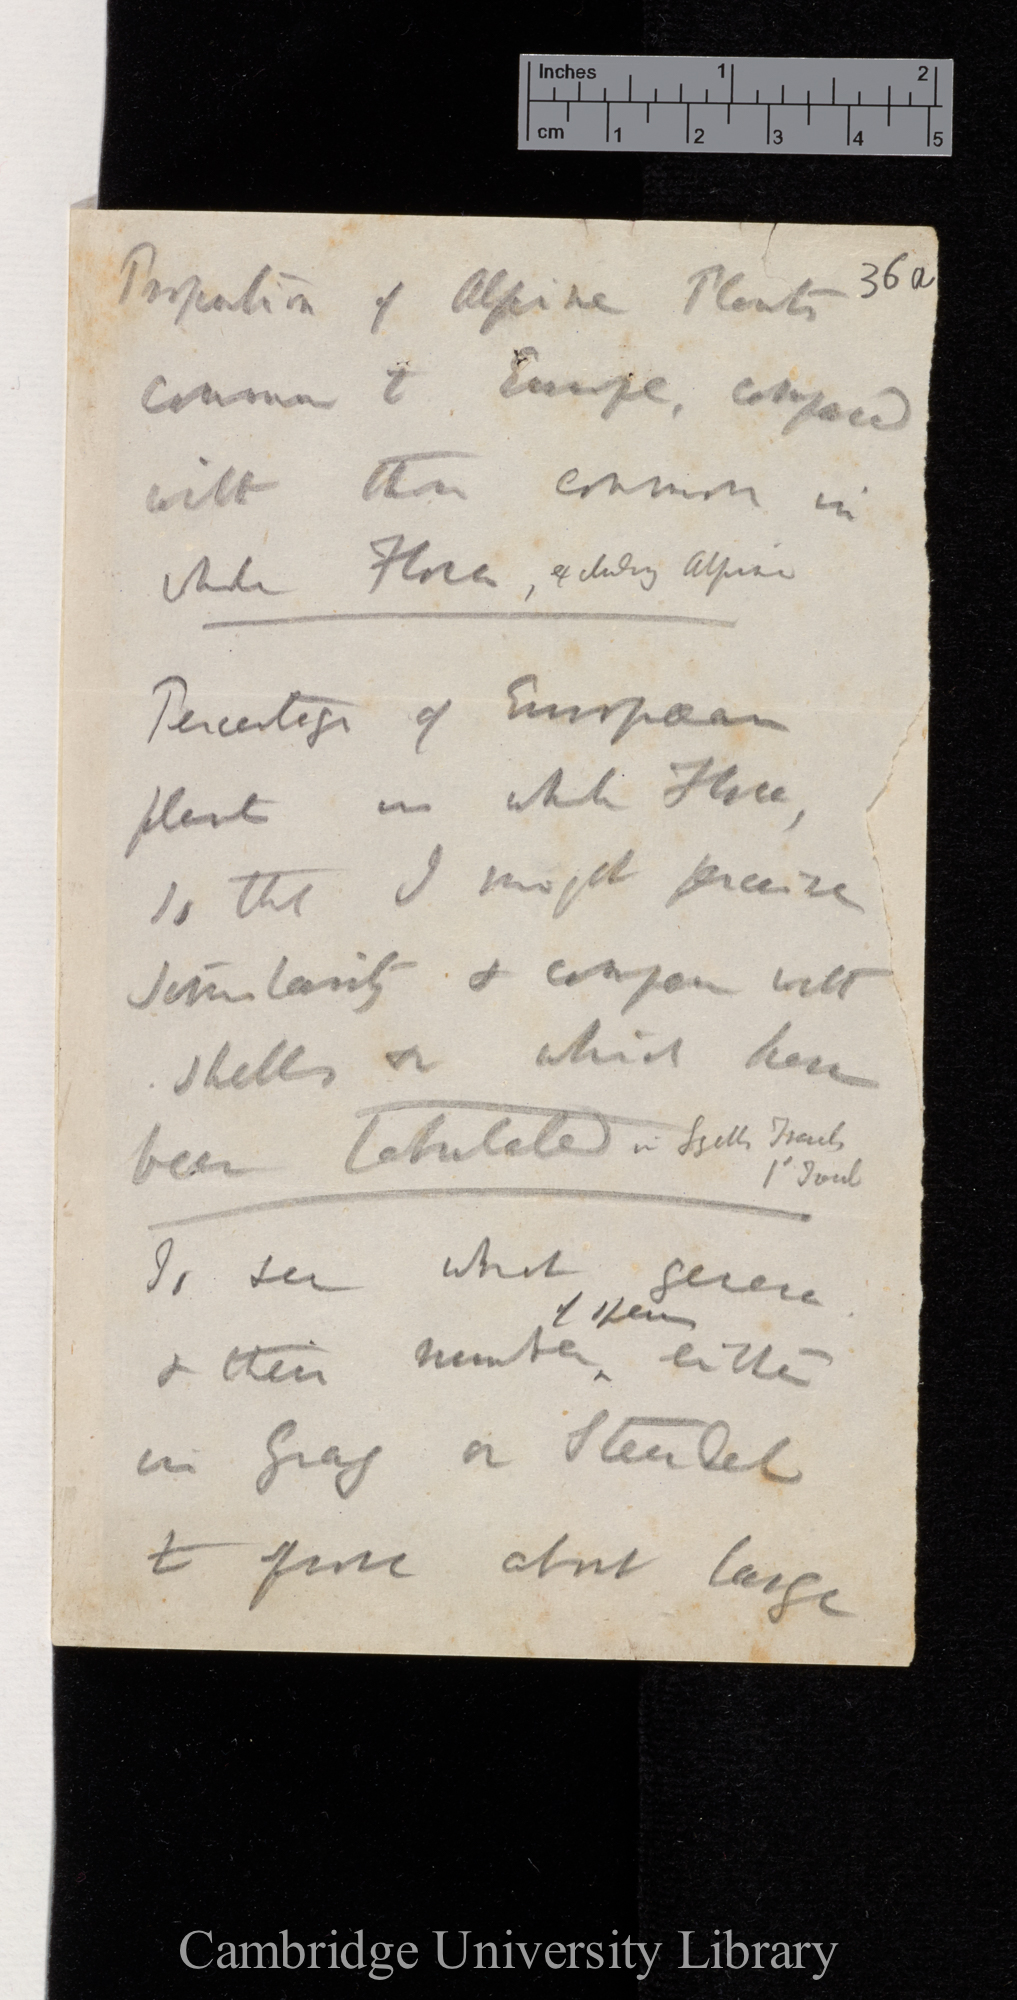 Inches 1 2
cm 1 2 3 4 5
36 a
Proportion of Alpine Plants
common to Europe, compared
with those common in
whole Flora, excluding Alpine
Percentage of European
plants in whole Flora,
so that I might perceive
similarity & compare with
shells &c which have
been tabulated in Lyells Travels
1st Travels
To see what genera
of species
& their number, either
in Gray or Steudel
to prove about large
Cambridge University Library